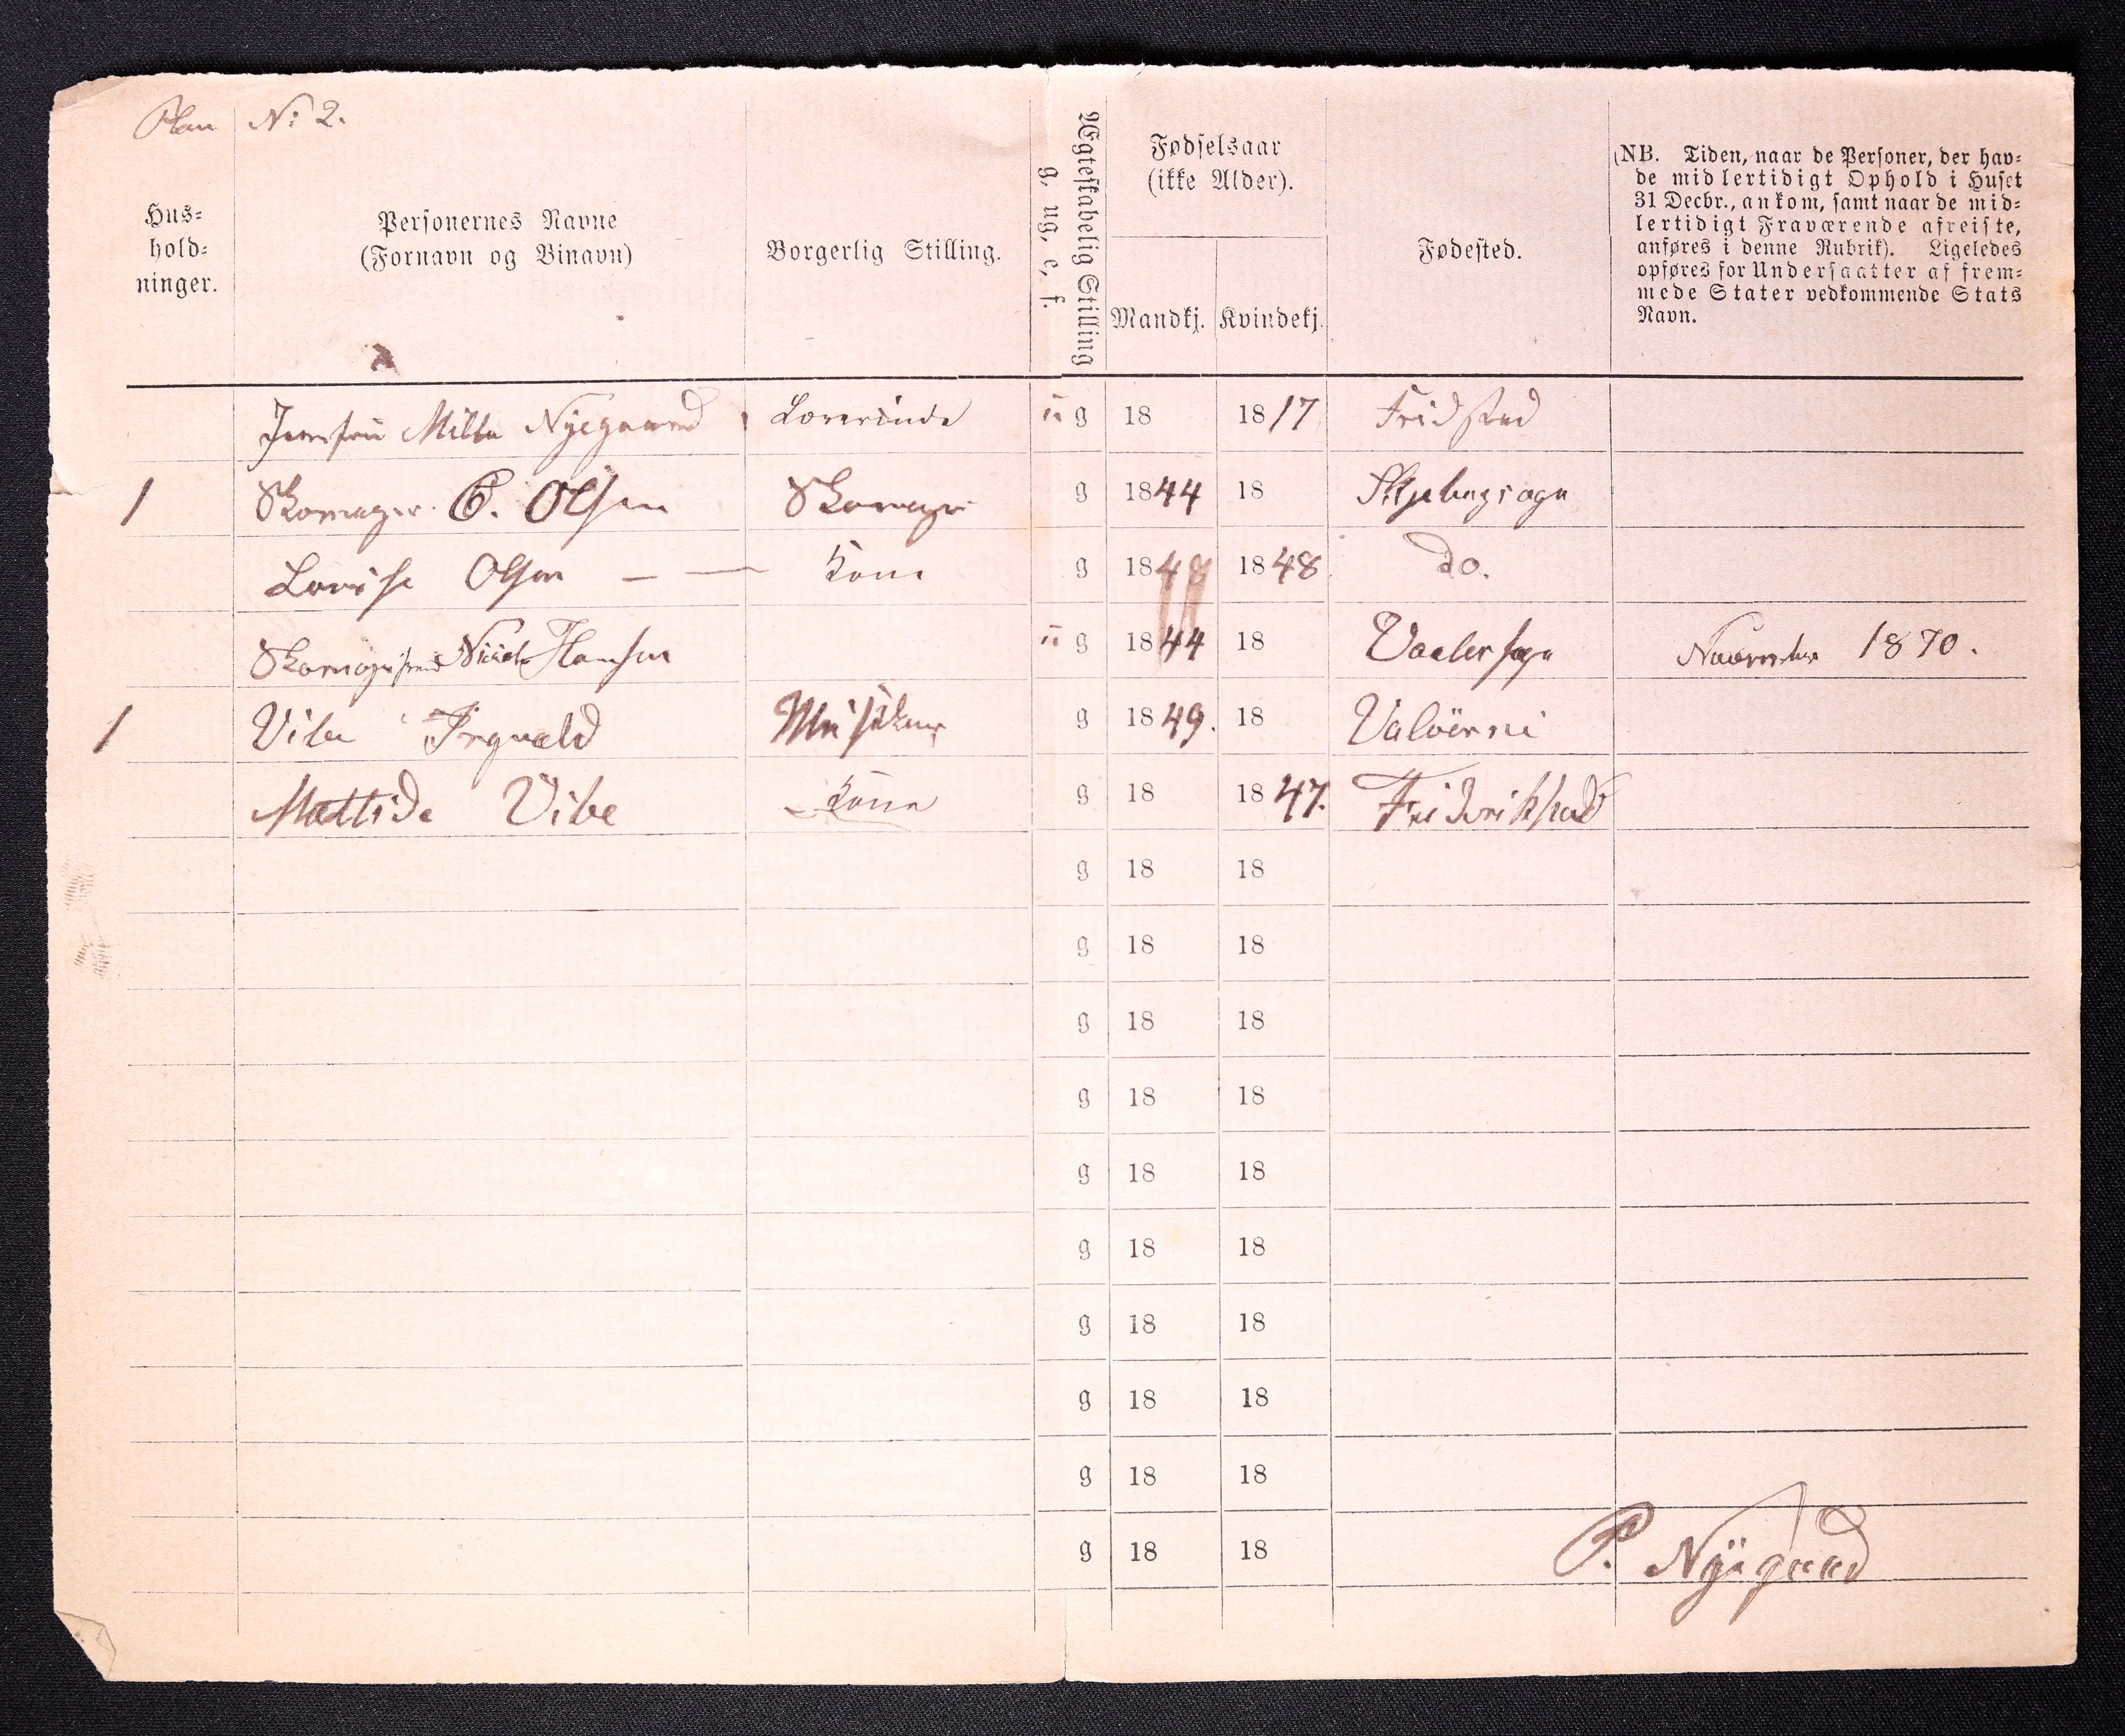 Plan No 2.
Hus-
hold-
ninger.
Personernes Navne
(Fornavn og Binavn)
Borgerlig Stilling.
Ægteskabelig Stilling
g, ug, e, f.
Fødselsaar
(ikke Alder).
Mandkj. Kvindekj.
Fødested.
(NB. Tiden, naar de Personer, der hav-
de midlertidigt Ophold i Huset
31 Decbr., ankom, samt naar de mid-
lertidigt Fraværende afreiste,
anføres i denne Rubrik). Ligeledes
opføres for Undersaatter af frem-
mede Stater vedkommende Stats
Navn.
Jomfru Milla Nyegaard Lærerinde ug 18 1817 Fridstad
1 Skomager C. Olsen Skomager g 1844 18 Skjebergsogn
Lovise Olsen — — Kone g 1848 1848 Do.
Hansen ug 1844 18 Vaalersogn November 1870.
1 Vibe g 1849. 18
Mattide Vibe Kone g 18 1847. Fridrikstad
g 18 18
g 18 18
g 18 18
g 18 18
g 18 18
g 18 18
g 18 18
g 18 18
g 18 18
g 18 18
P. Nyegaard